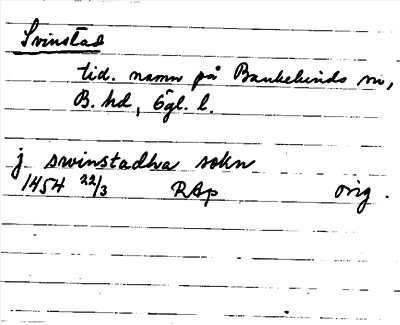 Svinstad
tid. namn på Bankekinds sn,
B. hd, Ögl. l.
j swinstadha sokn
1454 22/3 RAp orig.